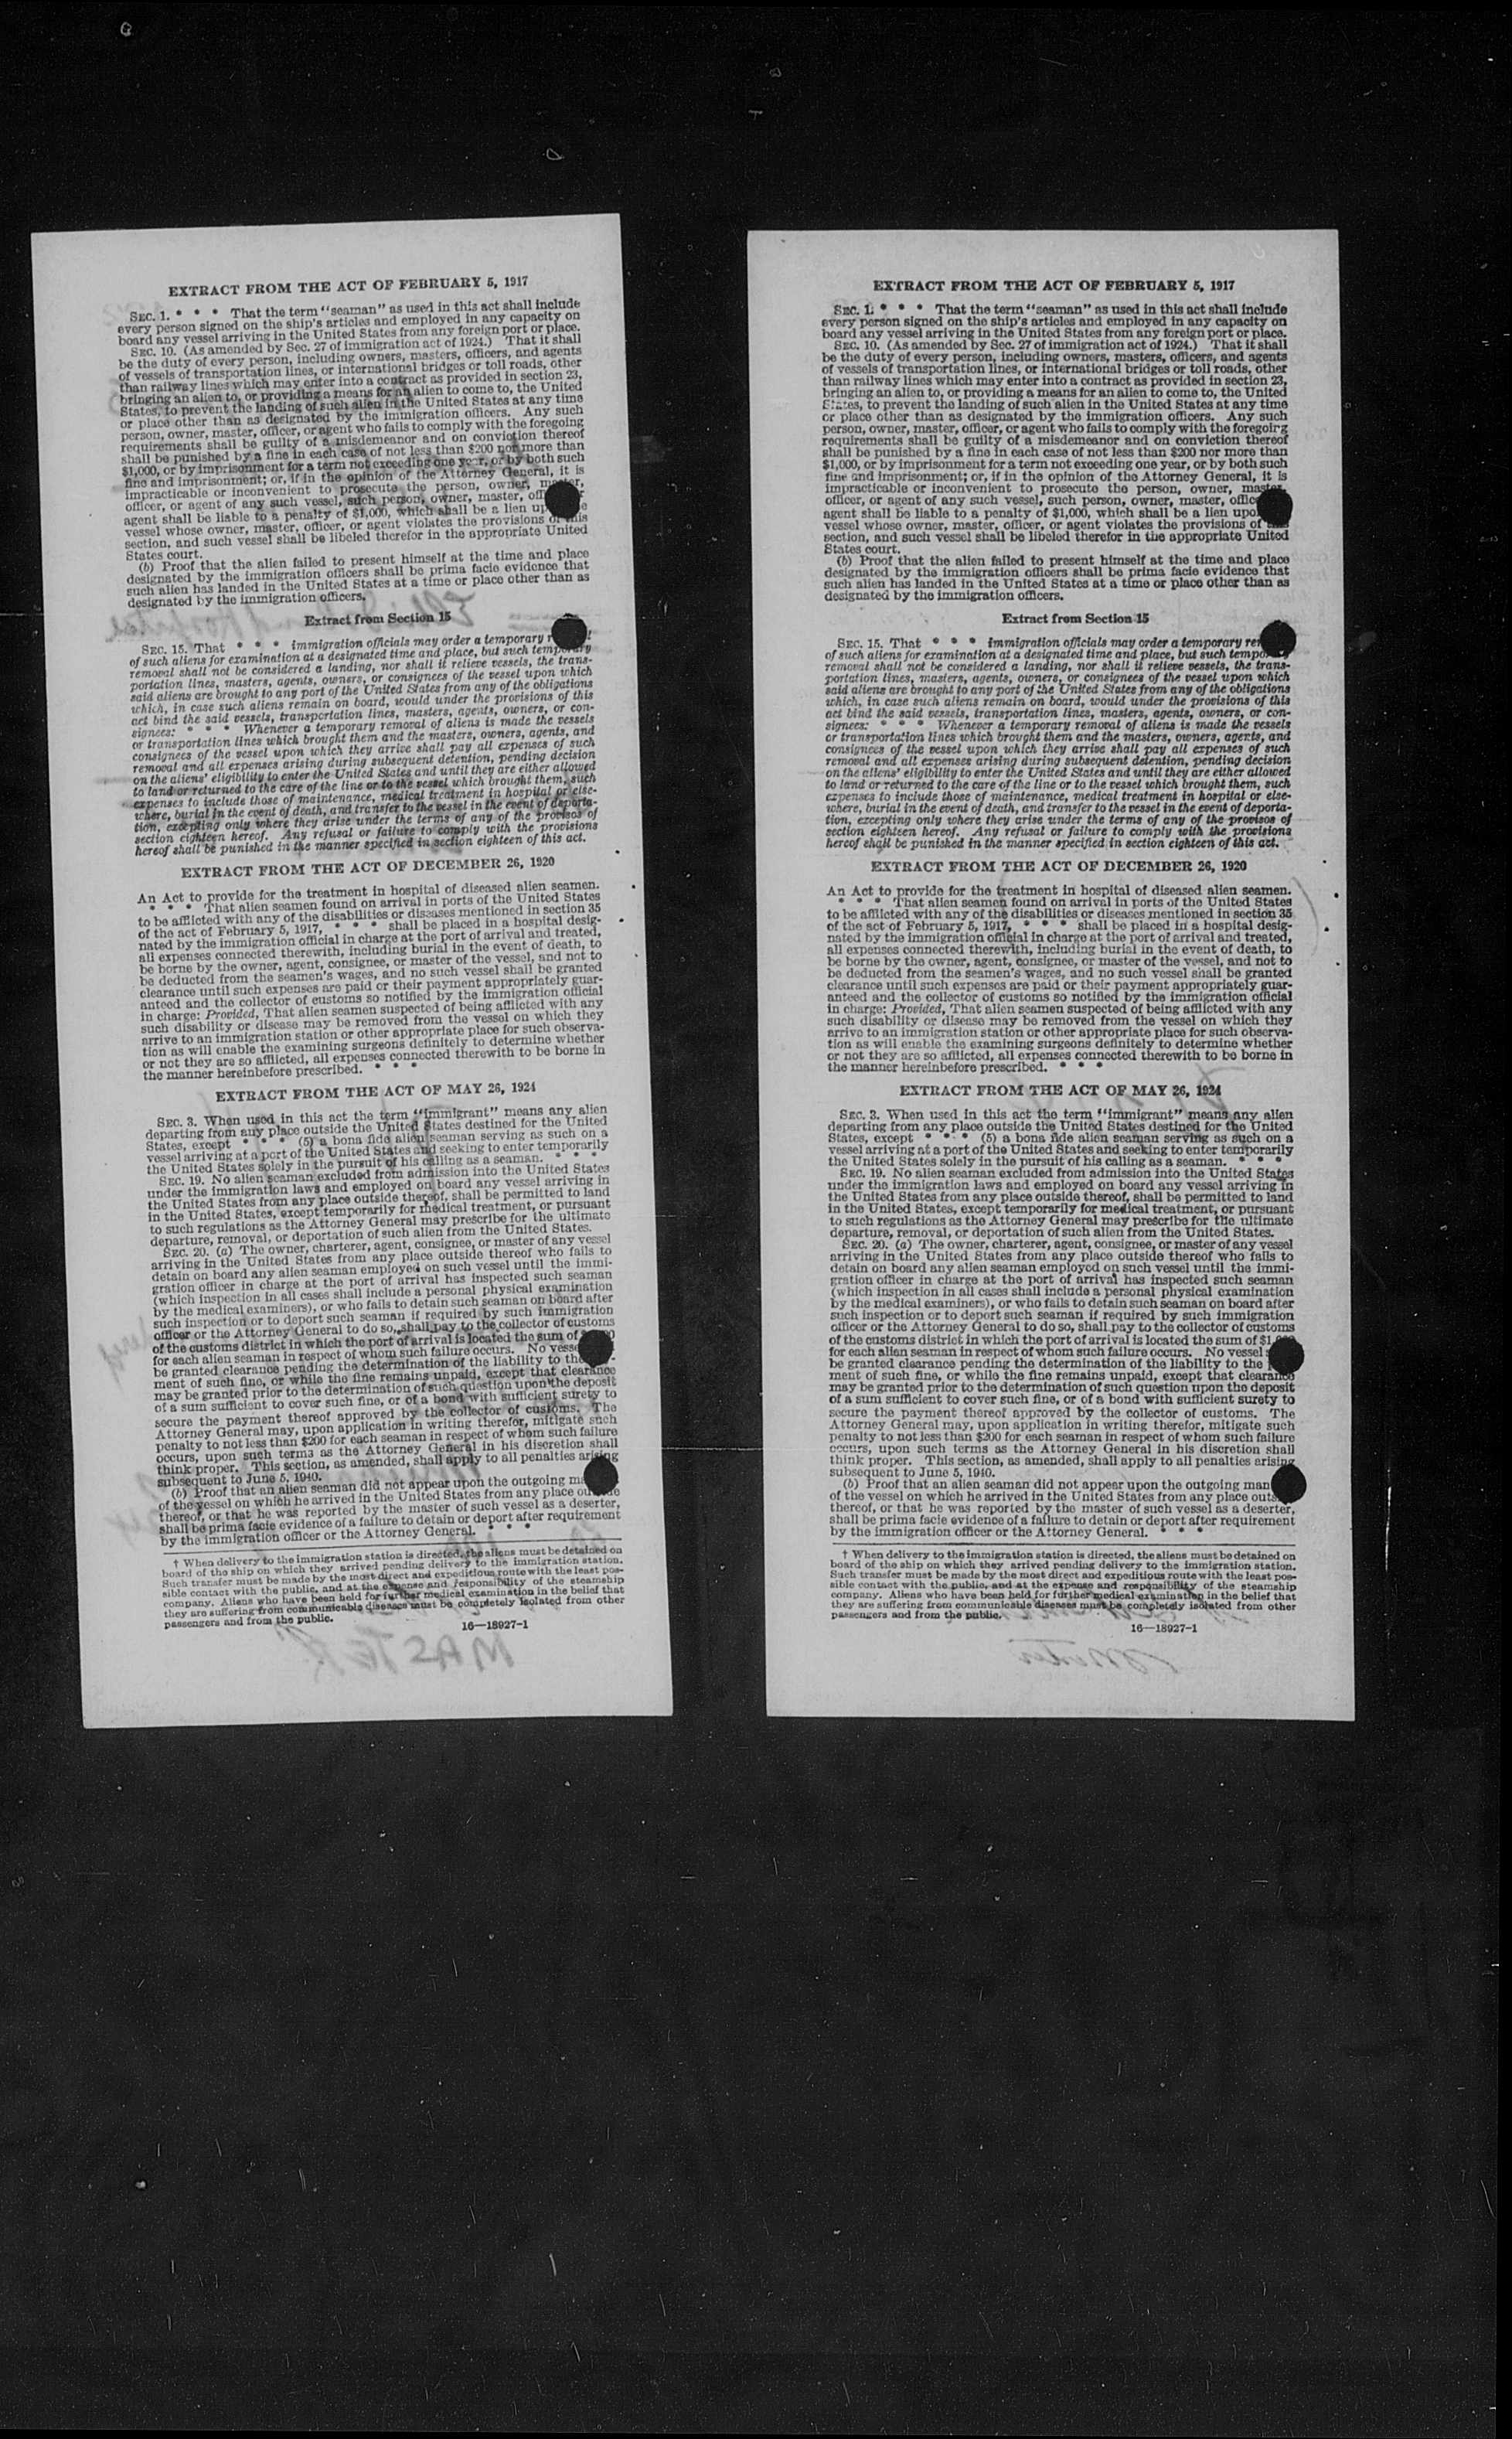 EXTRACT FROM THE ACT OF FEBRUARY 5, 1917
SEC. 1. * * * That the term "seaman" as used in this act shall include
every person signed on the ship's articles and employed in any capacity on
board any vessel arriving in the United States from any foreign port or place.
SEC. 10. (As amended by Sec. 27 of immigration act of 1924.) That it shall
be the duty of every person, including owners, masters, officers, and agents
of vessels of transportation lines, or international bridges or toll roads, other
than railway lines which may enter into a contract as provided in section 23,
bringing an alien to, or providing a means for an alien to come to, the United
States, to prevent the landing of such alien in the United States at any time
or place other than as designated by the immigration officers. Any such
person, owner, master, officer, or agent who fails to comply with the foregoing
requirements shall be guilty of a misdemeanor and on conviction thereof
shall be punished by a fine in each case of not less than $200 nor more than
$1,000, or by imprisonment for a term not exceeding one year, or by both such
fine and imprisonment; or, if in the opinion of the Attorney General, it is
impracticable or inconvenient to prosecute the person, owner, master,
officer, or agent of any such vessel, such person, owner, master,
agent shall be liable to a penalty of $1,000, which shall be a lien
vessel whose owner, master, officer, or agent violates the provisions of this
section, and such vessel shall be libeled therefor in the appropriate United
States court.
(b) Proof that the alien failed to present himself at the time and place
designated by the immigration officers shall be prima facie evidence that
such alien has landed in the United States at a time or place other than as
designated by the immigration officers.
Extract from Section 15
SEC. 15. That * * * immigration officials may order a temporary
of such aliens for examination at a designated time and place, but such temporary
removal shall not be considered a landing, nor shall it relieve vessels, the trans-
portation lines, masters, agents, owners, or consignees of the vessel upon which
said aliens are brought to any port of the United States from any of the obligations
which, in case such aliens remain on board, would under the provisions of this
act bind the said vessels, transportation lines, masters, agents, owners, or con-
signees: * * * Whenever a temporary removal of aliens is made the vessels
or transportation lines which brought them and the masters, owners, agents, and
consignees of the vessel upon which they arrive shall pay all expenses of such
removal and all expenses arising during subsequent detention, pending decision
on the aliens' eligibility to enter the United States and until they are either allowed
to land or returned to the care of the line or to the vessel which brought them, such
expenses to include those of maintenance, medical treatment in hospital or else-
where, burial in the event of death, and transfer to the vessel in the event of deporta-
tion, excepting only where they arise under the terms of any of the provisos of
section eighteen hereof. Any refusal or failure to comply with the provisions
hereof shall be punished in the manner specified in section eighteen of this act.
EXTRACT FROM THE ACT OF DECEMBER 26, 1920
An Act to provide for the treatment in hospital of diseased alien seamen.
* * * That alien seamen found on arrival in ports of the United States
to be afflicted with any of the disabilities or diseases mentioned in section 35
of the act of February 5, 1917, * * * shall be placed in a hospital desig-
nated by the immigration official in charge at the port of arrival and treated,
all expenses connected therewith, including burial in the event of death, to
be borne by the owner, agent, consignee, or master of the vessel, and not to
be deducted from the seamen's wages, and no such vessel shall be granted
clearance until such expenses are paid or their payment appropriately guar-
anteed and the collector of customs so notified by the immigration official
in charge: Provided, That alien seamen suspected of being afflicted with any
such disability or disease may be removed from the vessel on which they
arrive to an immigration station or other appropriate place for such observa-
tion as will enable the examining surgeons definitely to determine whether
or not they are so afflicted, all expenses connected therewith to be borne in
the manner hereinbefore prescribed. * * *
EXTRACT FROM THE ACT OF MAY 26, 1924
SEC. 3. When used in this act the term "immigrant" means any alien
departing from any place outside the United States destined for the United
States, except * * * (5) a bona fide alien seaman serving as such on a
vessel arriving at a port of the United States and seeking to enter temporarily
the United States solely in the pursuit of his calling as a seaman. * * *
SEC. 19. No alien seaman excluded from admission into the United States
under the immigration laws and employed on board any vessel arriving in
the United States from any place outside thereof, shall be permitted to land
in the United States, except temporarily for medical treatment, or pursuant
to such regulations as the Attorney General may prescribe for the ultimate
departure, removal, or deportation of such alien from the United States.
SEC. 20. (a) The owner, charterer, agent, consignee, or master of any vessel
arriving in the United States from any place outside thereof who fails to
detain on board any alien seaman employed on such vessel until the immi-
gration officer in charge at the port of arrival has inspected such seaman
(which inspection in all cases shall include a personal physical examination
by the medical examiners), or who fails to detain such seaman on board after
such inspection or to deport such seaman if required by such immigration
officer or the Attorney General to do so, shall pay to the collector of customs
of the customs district in which the port of arrival is located the sum of
for each alien seaman in respect of whom such failure occurs. No vessel
be granted clearance pending the determination of the liability to the
ment of such fine, or while the fine remains unpaid, except that clearance
may be granted prior to the determination of such question upon the deposit
of a sum sufficient to cover such fine, or of a bond with sufficient surety to
secure the payment thereof approved by the collector of customs. The
Attorney General may, upon application in writing therefor, mitigate such
penalty to not less than $200 for each seaman in respect of whom such failure
occurs, upon such terms as the Attorney General in his discretion shall
think proper. This section, as amended, shall apply to all penalties arising
subsequent to June 5, 1940.
(b) Proof that an alien seaman did not appear upon the outgoing
of the vessel on which he arrived in the United States from any place outside
thereof, or that he was reported by the master of such vessel as a deserter,
shall be prima facie evidence of a failure to detain or deport after requirement
by the immigration officer or the Attorney General. * * *
† When delivery to the immigration station is directed, the aliens must be detained on
board of the ship on which they arrived pending delivery to the immigration station.
Such transfer must be made by the most direct and expeditious route with the least pos-
sible contact with the public, and at the expense and responsibility of the steamship
company. Aliens who have been held for further medical examination in the belief that
they are suffering from communicable diseases must be completely isolated from other
passengers and from the public.
16—18927-1
MASTER
EXTRACT FROM THE ACT OF FEBRUARY 5, 1917
SEC. 1. * * * That the term "seaman" as used in this act shall include
every person signed on the ship's articles and employed in any capacity on
board any vessel arriving in the United States from any foreign port or place.
SEC. 10. (As amended by Sec. 27 of immigration act of 1924.) That it shall
be the duty of every person, including owners, masters, officers, and agents
of vessels of transportation lines, or international bridges or toll roads, other
than railway lines which may enter into a contract as provided in section 23,
bringing an alien to, or providing a means for an alien to come to, the United
States, to prevent the landing of such alien in the United States at any time
or place other than as designated by the immigration officers. Any such
person, owner, master, officer, or agent who fails to comply with the foregoing
requirements shall be guilty of a misdemeanor and on conviction thereof
shall be punished by a fine in each case of not less than $200 nor more than
$1,000, or by imprisonment for a term not exceeding one year, or by both such
fine and imprisonment; or, if in the opinion of the Attorney General, it is
impracticable or inconvenient to prosecute the person, owner, master,
officer, or agent of any such vessel, such person, owner, master,
agent shall be liable to a penalty of $1,000, which shall be a lien upon
vessel whose owner, master, officer, or agent violates the provisions of
section, and such vessel shall be libeled therefor in the appropriate United
States court.
(b) Proof that the alien failed to present himself at the time and place
designated by the immigration officers shall be prima facie evidence that
such alien has landed in the United States at a time or place other than as
designated by the immigration officers.
Extract from Section 15
SEC. 15. That * * * immigration officials may order a temporary
of such aliens for examination at a designated time and place, but such temporary
removal shall not be considered a landing, nor shall it relieve vessels, the trans-
portation lines, masters, agents, owners, or consignees of the vessel upon which
said aliens are brought to any port of the United States from any of the obligations
which, in case such aliens remain on board, would under the provisions of this
act bind the said vessels, transportation lines, masters, agents, owners, or con-
signees: * * * Whenever a temporary removal of aliens is made the vessels
or transportation lines which brought them and the masters, owners, agents, and
consignees of the vessel upon which they arrive shall pay all expenses of such
removal and all expenses arising during subsequent detention, pending decision
on the aliens' eligibility to enter the United States and until they are either allowed
to land or returned to the care of the line or to the vessel which brought them, such
expenses to include those of maintenance, medical treatment in hospital or else-
where, burial in the event of death, and transfer to the vessel in the event of deporta-
tion, excepting only where they arise under the terms of any of the provisos of
section eighteen hereof. Any refusal or failure to comply with the provisions
hereof shall be punished in the manner specified in section eighteen of this act.
EXTRACT FROM THE ACT OF DECEMBER 26, 1920
An Act to provide for the treatment in hospital of diseased alien seamen.
* * * That alien seamen found on arrival in ports of the United States
to be afflicted with any of the disabilities or diseases mentioned in section 35
of the act of February 5, 1917, * * * shall be placed in a hospital desig-
nated by the immigration official in charge at the port of arrival and treated,
all expenses connected therewith, including burial in the event of death, to
be borne by the owner, agent, consignee, or master of the vessel, and not to
be deducted from the seamen's wages, and no such vessel shall be granted
clearance until such expenses are paid or their payment appropriately guar-
anteed and the collector of customs so notified by the immigration official
in charge: Provided, That alien seamen suspected of being afflicted with any
such disability or disease may be removed from the vessel on which they
arrive to an immigration station or other appropriate place for such observa-
tion as will enable the examining surgeons definitely to determine whether
or not they are so afflicted, all expenses connected therewith to be borne in
the manner hereinbefore prescribed. * * *
EXTRACT FROM THE ACT OF MAY 26, 1924
SEC. 3. When used in this act the term "immigrant" means any alien
departing from any place outside the United States destined for the United
States, except * * * (5) a bona fide alien seaman serving as such on a
vessel arriving at a port of the United States and seeking to enter temporarily
the United States solely in the pursuit of his calling as a seaman. * * *
SEC. 19. No alien seaman excluded from admission into the United States
under the immigration laws and employed on board any vessel arriving in
the United States from any place outside thereof, shall be permitted to land
in the United States, except temporarily for medical treatment, or pursuant
to such regulations as the Attorney General may prescribe for the ultimate
departure, removal, or deportation of such alien from the United States.
SEC. 20. (a) The owner, charterer, agent, consignee, or master of any vessel
arriving in the United States from any place outside thereof who fails to
detain on board any alien seaman employed on such vessel until the immi-
gration officer in charge at the port of arrival has inspected such seaman
(which inspection in all cases shall include a personal physical examination
by the medical examiners), or who fails to detain such seaman on board after
such inspection or to deport such seaman if required by such immigration
officer or the Attorney General to do so, shall pay to the collector of customs
of the customs district in which the port of arrival is located the sum of $1,000
for each alien seaman in respect of whom such failure occurs. No vessel
be granted clearance pending the determination of the liability to the
ment of such fine, or while the fine remains unpaid, except that clearance
may be granted prior to the determination of such question upon the deposit
of a sum sufficient to cover such fine, or of a bond with sufficient surety to
secure the payment thereof approved by the collector of customs. The
Attorney General may, upon application in writing therefor, mitigate such
penalty to not less than $200 for each seaman in respect of whom such failure
occurs, upon such terms as the Attorney General in his discretion shall
think proper. This section, as amended, shall apply to all penalties arising
subsequent to June 5, 1940.
(b) Proof that an alien seaman did not appear upon the outgoing
of the vessel on which he arrived in the United States from any place
thereof, or that he was reported by the master of such vessel as a deserter,
shall be prima facie evidence of a failure to detain or deport after requirement
by the immigration officer or the Attorney General. * * *
† When delivery to the immigration station is directed, the aliens must be detained on
board of the ship on which they arrived pending delivery to the immigration station.
Such transfer must be made by the most direct and expeditious route with the least pos-
sible contact with the public, and at the expense and responsibility of the steamship
company. Aliens who have been held for further medical examination in the belief that
they are suffering from communicable diseases must be completely isolated from other
passengers and from the public.
16—18927-1
Master